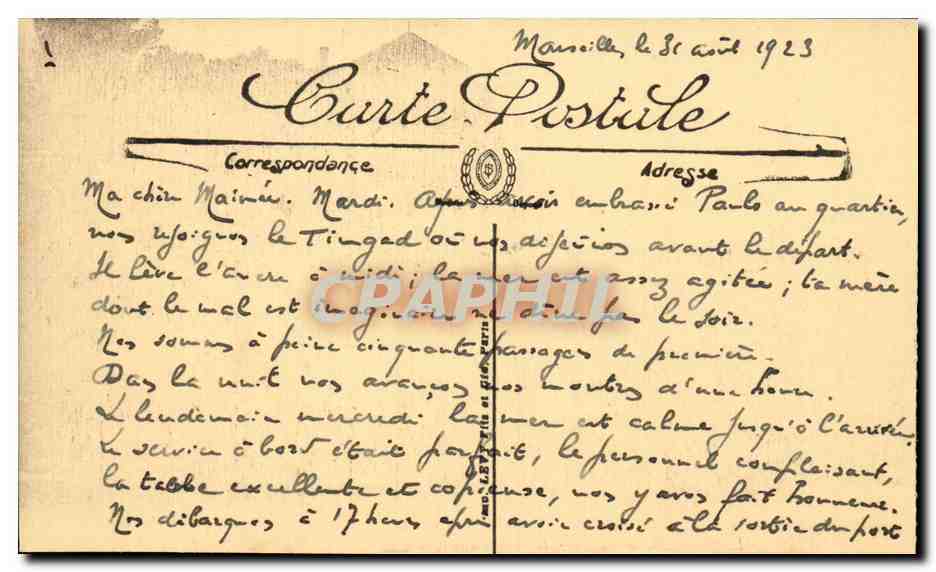 Marseille, le 31 août 1923
Carte Postale
Correspondance
Adresse
Ma chère Maimée. Mardi. Après avoir embrassé Paulo au quartier,
nous rejoignons le Timgad où nos déjeunons avant le départ.
Il lève l'ancre à midi ; la mer est assez agitée ; ta mère
dont le mal est imaginaire ne dîne pas le soir.
Nos sommes à peine cinquante passagers de première.
Dans la nuit nos avançons nos montres d'une heure.
Le lendemain mercredi la mer est calme jusqu'à l'arrivée.
Le service à bord était parfait, le personnel complaisant,
la table excellente et copieuse, nos y avons fait honneur.
Nos débarquons à 17 heures après avoir croisé à la sortie du port
LEVY Fils et Cie, Paris
CPAPHIL